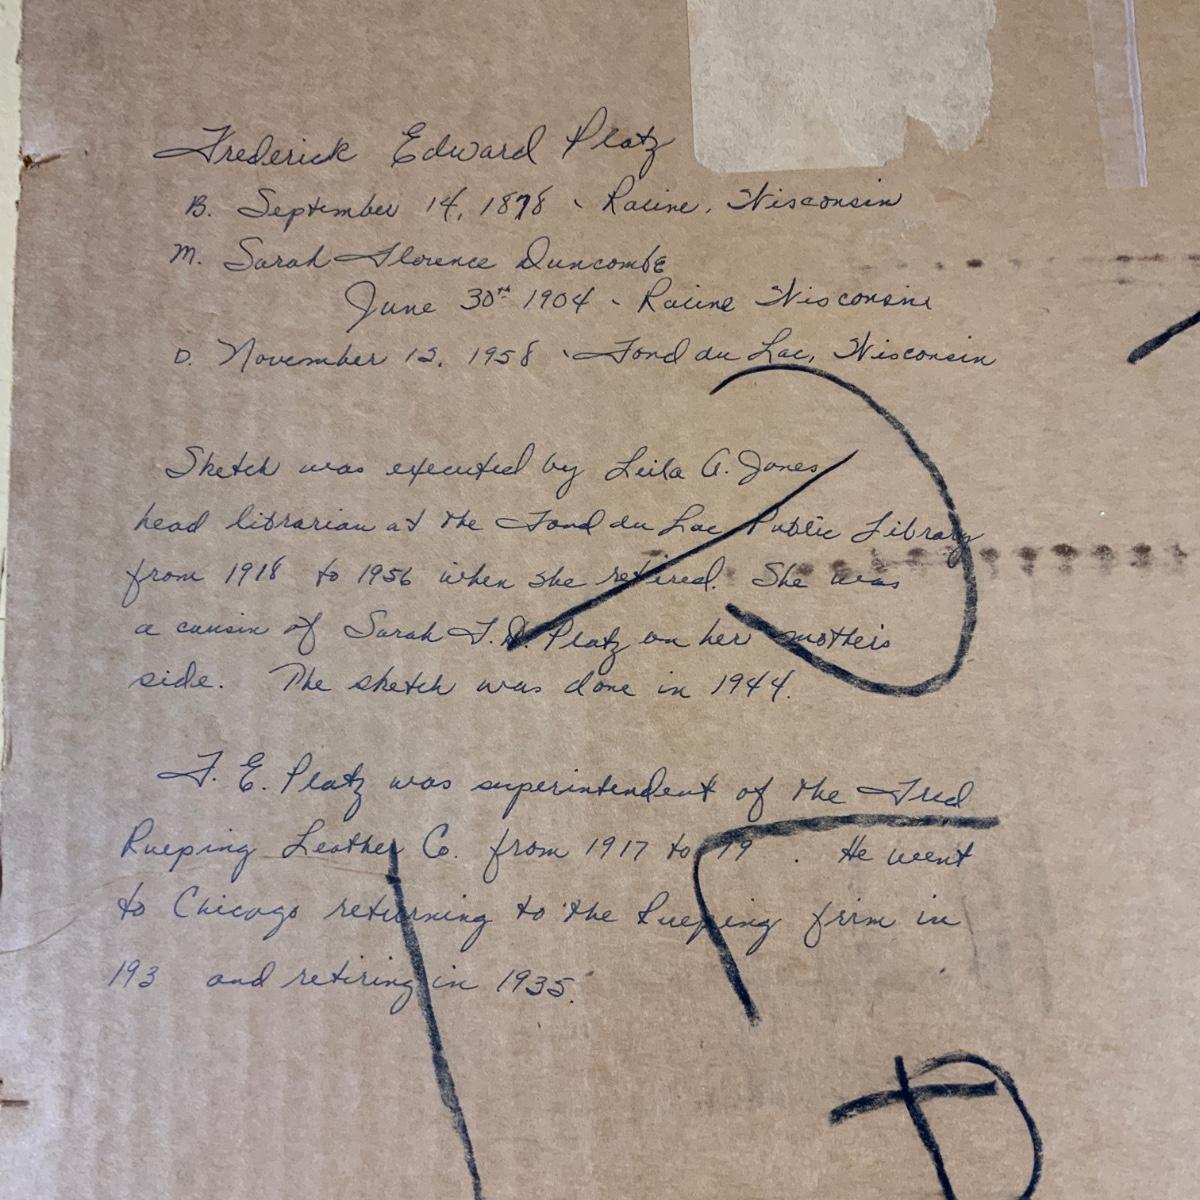 Frederick Edward Platz
B. September 14, 1878 - Racine, Wisconsin
M. Sarah Florence Duncombe
June 30th 1904 - Racine Wisconsin
D. November 12, 1958 - Fond du Lac, Wisconsin
Sketch was executed by Leila A. Janes
head librarian at the Fond du Lac Public Library
from 1918 to 1956 when she retired. She was
a cousin of Sarah F. D. Platz on her mother's
side. The sketch was done in 1944.
F. E. Platz was superintendent of the Fred
Rueping Leather Co. from 1917 to 19 . He went
to Chicago returning to the Rueping firm in
193 and retiring in 1935.